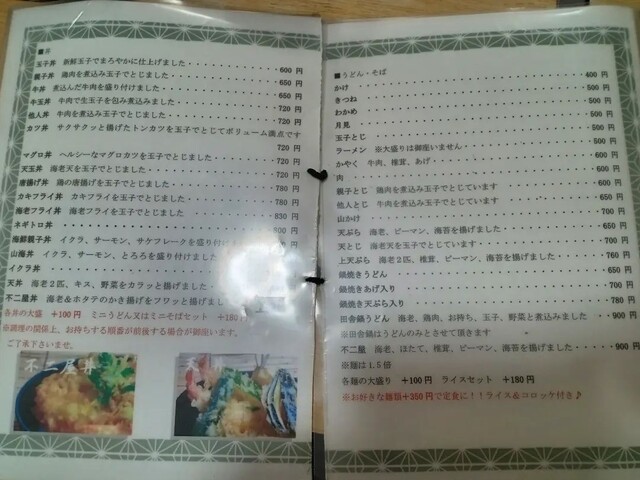 ■丼
玉子丼 新鮮玉子でまろやかに仕上げました・・・・・・・・600円
親子丼 鶏肉を煮込み玉子でとじました・・・・・・・・650円
牛丼 煮込んだ牛肉を盛り付けました・・・・・・・・650円
牛玉丼 牛肉で生玉子を包み煮込みました・・・・・・・・720円
他人丼 牛肉を煮込み玉子でとじました・・・・・・・・720円
カツ丼 サクサクッと揚げたトンカツを玉子でとじてボリューム満点です
720円
マグロ丼 ヘルシーなマグロカツを玉子でとじました・・・・・・720円
天玉丼 海老天を玉子でとじました・・・・・・・・720円
唐揚げ丼 鶏の唐揚げを玉子でとじました・・・・・・・・780円
カキフライ丼 カキフライを玉子でとじました・・・・・・780円
海老フライ丼 海老フライを玉子でとじました・・・・・・830円
ネギトロ丼・・・・・・・・800円
海鮮親子丼 イクラ、サーモン、サケフレークを盛り付け
山海丼 イクラ、サーモン、とろろを盛り付けました
イクラ丼・・・・・・・・
天丼 海老2匹、キス、野菜をカラッと揚げました
不二屋丼 海老&ホタテのかき揚げをフワッと揚げました
各丼の大盛 +100円 ミニうどん又はミニそばセット +180円
※調理の関係上、お待ちする順番が前後する場合が御座います。
ご了承下さいませ。
不二屋丼
天丼
■うどん・そば
かけ・・・・・・・・400円
きつね・・・・・・・・500円
わかめ・・・・・・・・500円
月見・・・・・・・・500円
玉子とじ・・・・・・・・500円
ラーメン ※大盛りは御座いません・・・・・・・・600円
かやく 牛肉、椎茸、あげ・・・・・・・・600円
肉・・・・・・・・600円
親子とじ 鶏肉を煮込み玉子でとじています・・・・・・・・650円
他人とじ 牛肉を煮込み玉子でとじています・・・・・・・・650円
山かけ・・・・・・・・700円
天ぷら 海老、ピーマン、海苔を揚げました・・・・・・・・650円
天とじ 海老天を玉子でとじています・・・・・・・・700円
上天ぷら 海老2匹、椎茸、ピーマン、海苔を揚げました・・・・760円
鍋焼きうどん・・・・・・・・650円
鍋焼きあげ入り・・・・・・・・700円
鍋焼き天ぷら入り・・・・・・・・780円
田舎鍋うどん 海老、鶏肉、お持ち、玉子、野菜と煮込みました・・・900円
※田舎鍋はうどんのみとさせて頂きます
不二屋 海老、ほたて、椎茸、ピーマン、海苔を揚げました・・・・・900円
※麺は1.5倍
各麺の大盛り +100円 ライスセット +180円
※お好きな麺類+350円で定食に!!ライス&コロッケ付き♪